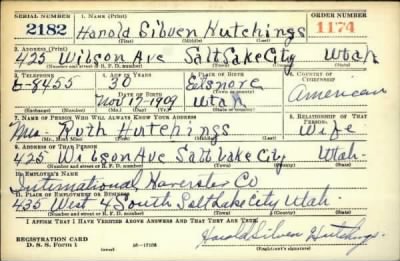 SERIAL NUMBER 1. NAME (Print) ORDER NUMBER
2182 Harold Silven Hutchings 1174
(First) (Middle) (Last)
2. ADDRESS (Print)
425 Wilson Ave Salt Lake City Utah
(Number and street or R. F. D. number) (Town) (County) (State)
3. TELEPHONE 4. AGE IN YEARS 5. PLACE OF BIRTH 6. COUNTRY OF CITIZENSHIP
6-8455 30 Elsinore American
DATE OF BIRTH (Town or county)
Nov 17-1909 Utah
(Exchange) (Number) (Mo.) (Day) (Yr.) (State or country)
7. NAME OF PERSON WHO WILL ALWAYS KNOW YOUR ADDRESS 8. RELATIONSHIP OF THAT PERSON
Mrs. Ruth Hutchings Wife
(Mr., Mrs., Miss) (First) (Middle) (Last)
9. ADDRESS OF THAT PERSON
425 Wilson Ave Salt Lake City Utah
(Number and street or R. F. D. number) (Town) (County) (State)
10. EMPLOYER'S NAME
International Harvester Co
11. PLACE OF EMPLOYMENT OR BUSINESS
435 West 4 South Salt Lake City Utah
(Number and street or R. F. D. number) (Town) (County) (State)
I AFFIRM THAT I HAVE VERIFIED ABOVE ANSWERS AND THAT THEY ARE TRUE.
REGISTRATION CARD
D. S. S. Form 1 Harold Silven Hutchings
(Registrant's signature)